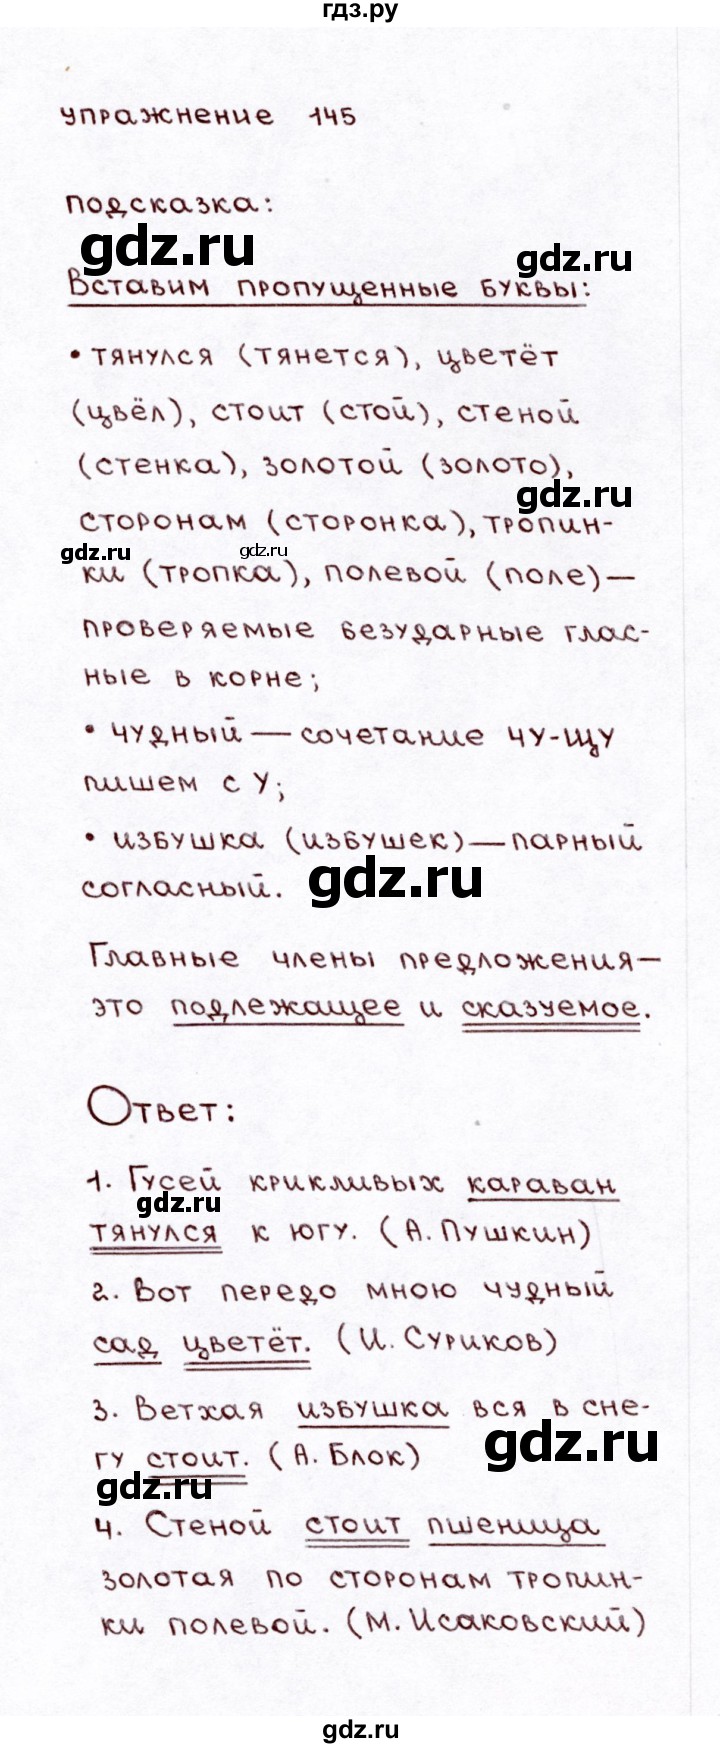 гдз.ру
упражнение 145
подсказка:
gdz.ru
gdz.ru
Вставим пропущенные буквы:
• тянулся (тянется), цветёт
(цвёл), стоит (стой), стеной
(стенка), золотой (золото),
gdz.ru
сторонам (сторонка), тропин-
gdz.ru
gdz.ru
ки (тропка), полевой (поле)—
проверяемые безударные глас-
ные в корне;
• чудный — сочетание чу-щу
пишем с у;
• избушка (избушек) — парный
согласный.
gdz.ru
Главные члены предложения—
это подлежащее и сказуемое.
Ответ:
1. Гусей крикливых караван
gdz.ru
тянулся к югу. (А. Пушкин)
2. Вот передо мною чудный
сад цветёт. (И. Суриков)
3. Ветхая избушка вся в сне-
gdz.ru
гу стоит. (А. Блок)
gdz.ru
4. Стеной стоит пшеница
золотая по сторонам тропин-
ки полевой. (М. Исаковский)
gdz.ru